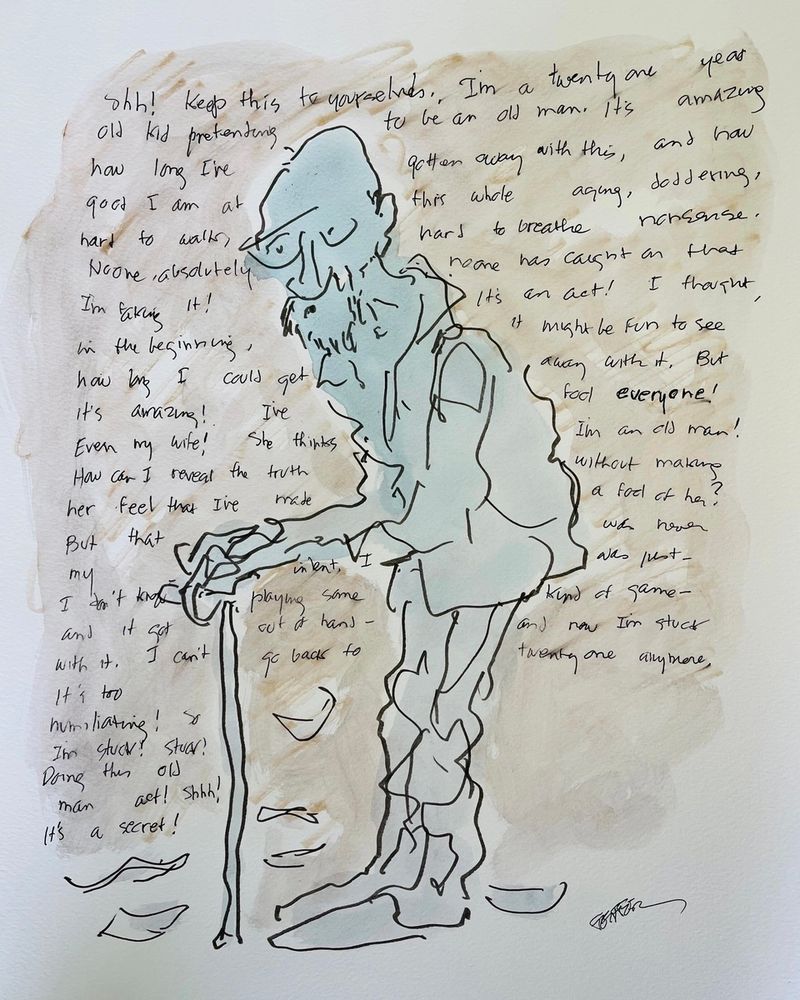 Shh! Keep this to yourselves. I'm a twenty one year
old kid pretending to be an old man. It's amazing
how long I've gotten away with this, and how
good I am at this whole aging, doddering,
hard to walk, hard to breathe nonsense.
No one, absolutely no one has caught on that
I'm faking it! It's an act! I thought,
in the beginning, it might be fun to see
how long I could get away with it. But
it's amazing! I've fool everyone!
Even my wife! She thinks I'm an old man!
How can I reveal the truth without making
her feel that I've made a fool of her?
But that was never
my intent, I was just—
I don't know playing some kind of game—
and it got out of hand— and now I'm stuck
with it. I can't go back to twenty one anymore.
It's too
humiliating! So
I'm stuck! stuck!
Doing this old
man act! Shhh!
It's a secret!